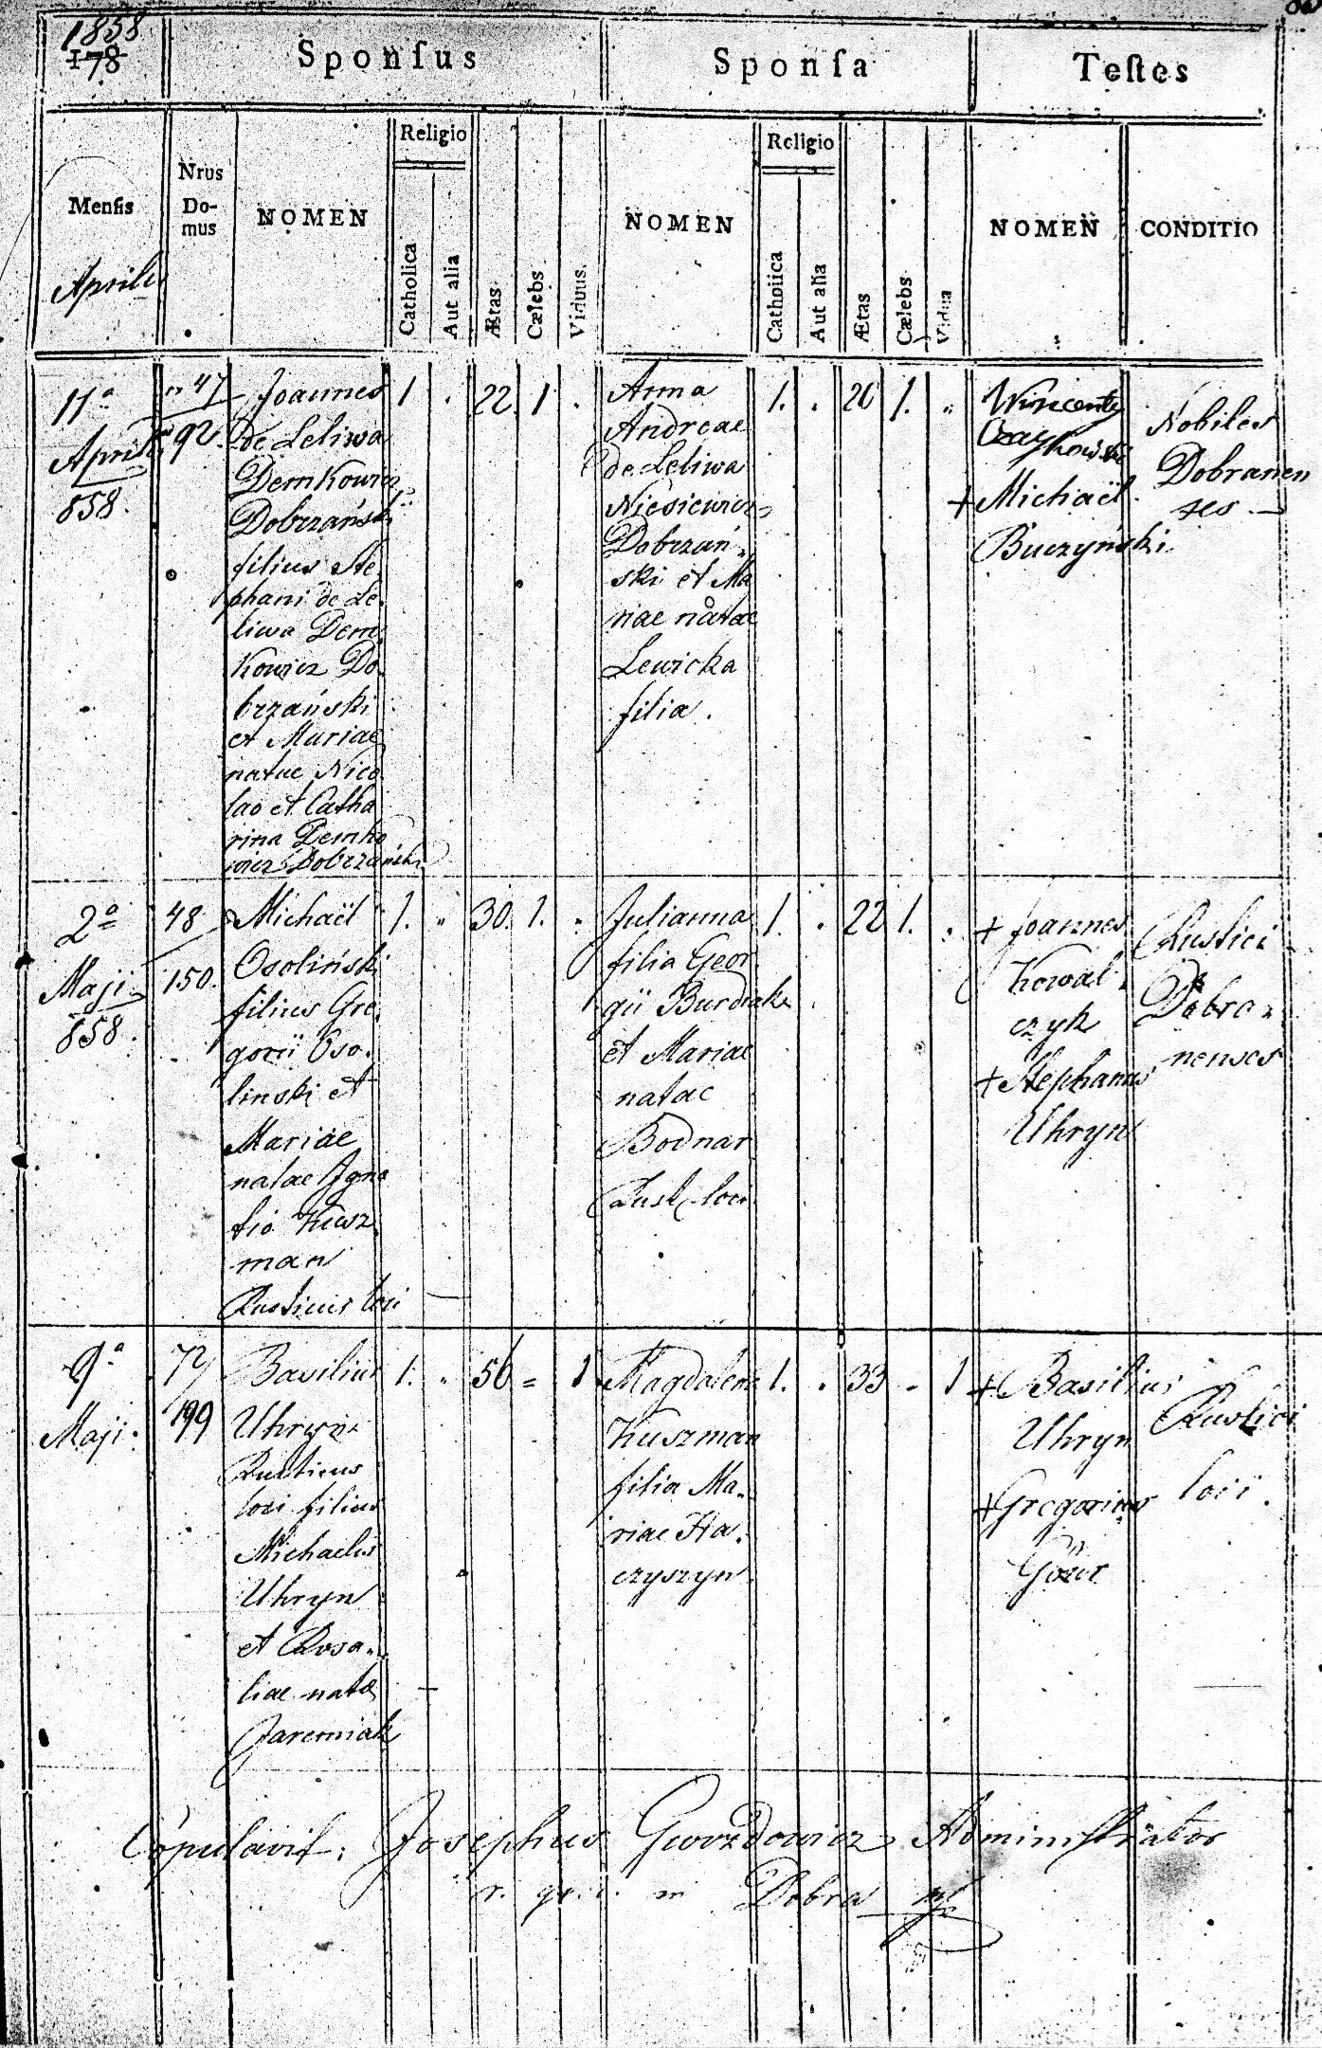 1858
178
Sponsus
Sponsa
Testes
Mensis
Aprilis
Nrus
Do-
mus
NOMEN
Religio
Catholica
Aut alia
Ætas
Cælebs
Viduus.
NOMEN
Religio
Catholica
Aut alia
Ætas
Cælebs
Vidua
NOMEN
CONDITIO
11a
Aprilis
858.
n 47
92.
Joannes
de Leliwa
Demkowicz
Dobrzański
filius Ste-
phani de Le-
liwa Dem-
kowicz Do-
brzański
et Mariae
natae Nico
lao et Catha
rina Demko
wicz Dobrzański
1
22.
1
Anna
Andreae
de Leliwa
Niesiewicz
Dobrzań-
ski et Ma
riae natae
Lewicka
filia.
1.
20
1.
Wincenty
Czaykowski
+ Michaël
Buczyński
Nobiles
Dobranen
ses
2a
Maji
858.
48
150.
Michaël
Osoliński
filius Gre-
gorii Oso-
linski et
Mariae
natae Igna
tio Kusz
man
Rusticus loci
1.
30.
1.
Julianna
filia Geor
gii Burdiak
et Mariae
natae
Bodnar
Rust. loci
1.
22
1.
+ Joannes
Kowal-
czyk
+ Stephanus
Uhryn
Rustici
Dobra-
nenses
9a
Maji.
72
199
Basilius
Uhryn
Rusticus
loci filius
Michaelis
Uhryn
et Rosa-
liae natae
Jaremiak
1.
56
1
Magdalena
Kuszman
filia Ma-
riae Ha-
czyszyn
1.
33
1
+ Basilius
Uhryn
+ Gregorius
Rustici
loci.
Copulavit: Josephus Gwozdowicz Administrator
in Dobra